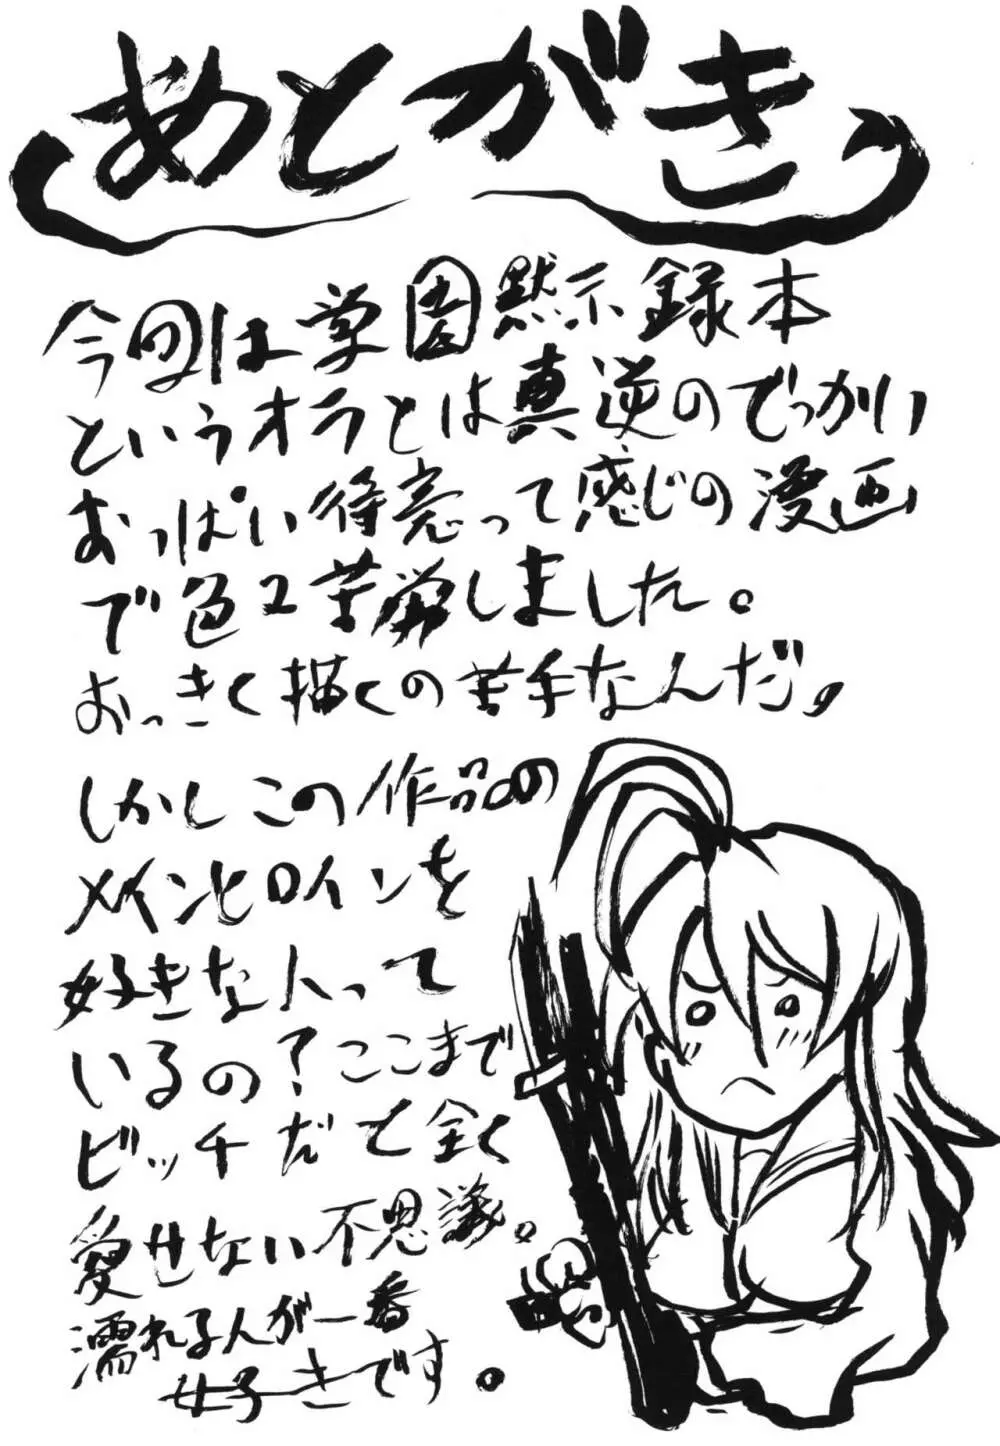 あとがき
今回は学園黙示録本
というオラとは真逆のでっかい
おっぱい得意って感じの漫画
で色々苦労しました。
おっきく描くの苦手なんだ。
しかしこの作品の
メインヒロインを
好きな人って
いるの？ここまで
ビッチだと全く
愛せない不思議。
濡れる人が一番
好きです。